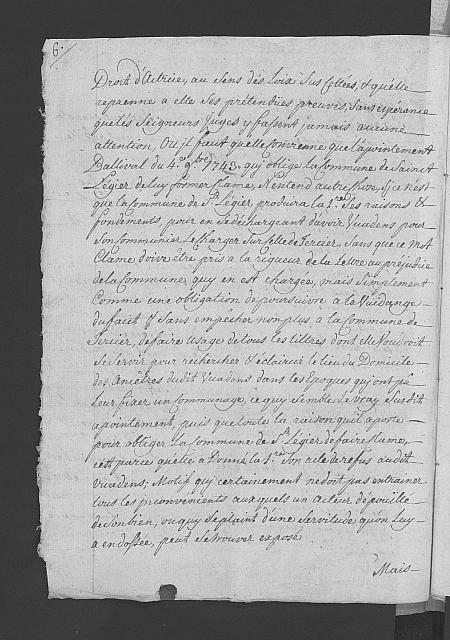 6.
Droit d'Actrice, au sens des Loix sus cittées, & quelle
reprenne a elle ses prétendües preuves, sans espérance
que les Seigneurs Juges y fassent jamais aucune
attention, Ou il faut quelle convienne que l'apointement
Balival du 4.e 9bre 1743. qui oblige la Commune de Saint
Légier de luy former Clame, n'entend autre chose, si ce n'est
que la Commune de St. Légier produira la 1.re ses raisons &
fondements, pour en se déchargeant d'avoir Vuadens pour
son Communier, Le charger sur celle de Fercier, sans que ce mot
Clame doive être pris a la rigueur de la Lettre au préjudice
de la Commune, quy en est chargée, mais simplement
comme une obligation de poursuivre a la Vuidange
du fait & sans empêcher non plus, a la Commune de
Fercier, de faire usage de tous les tiltres dont elle voudroit
se servir pour rechercher & éclaircir le lieu du Domicile
des Ancêtres dudit Vuadens dans les Epoques qui ont pû
leur fixer un Communage, ce quy semble le vray sus dit
apointement, puis que toute la raison qu'il aporte
pour obliger La Commune de St. Légier de faire Clame,
c'est parce quelle a Donné la 1.re Son acte de refus audit
Vuadens; Motif quy certainement ne doit pas entrainer
tous les inconvenients auxquels un acteur dépouillé
de son bien, ou quy se plaint d'une Servitude qu'on Luy
a endossée, peut se trouver exposé.
Mais